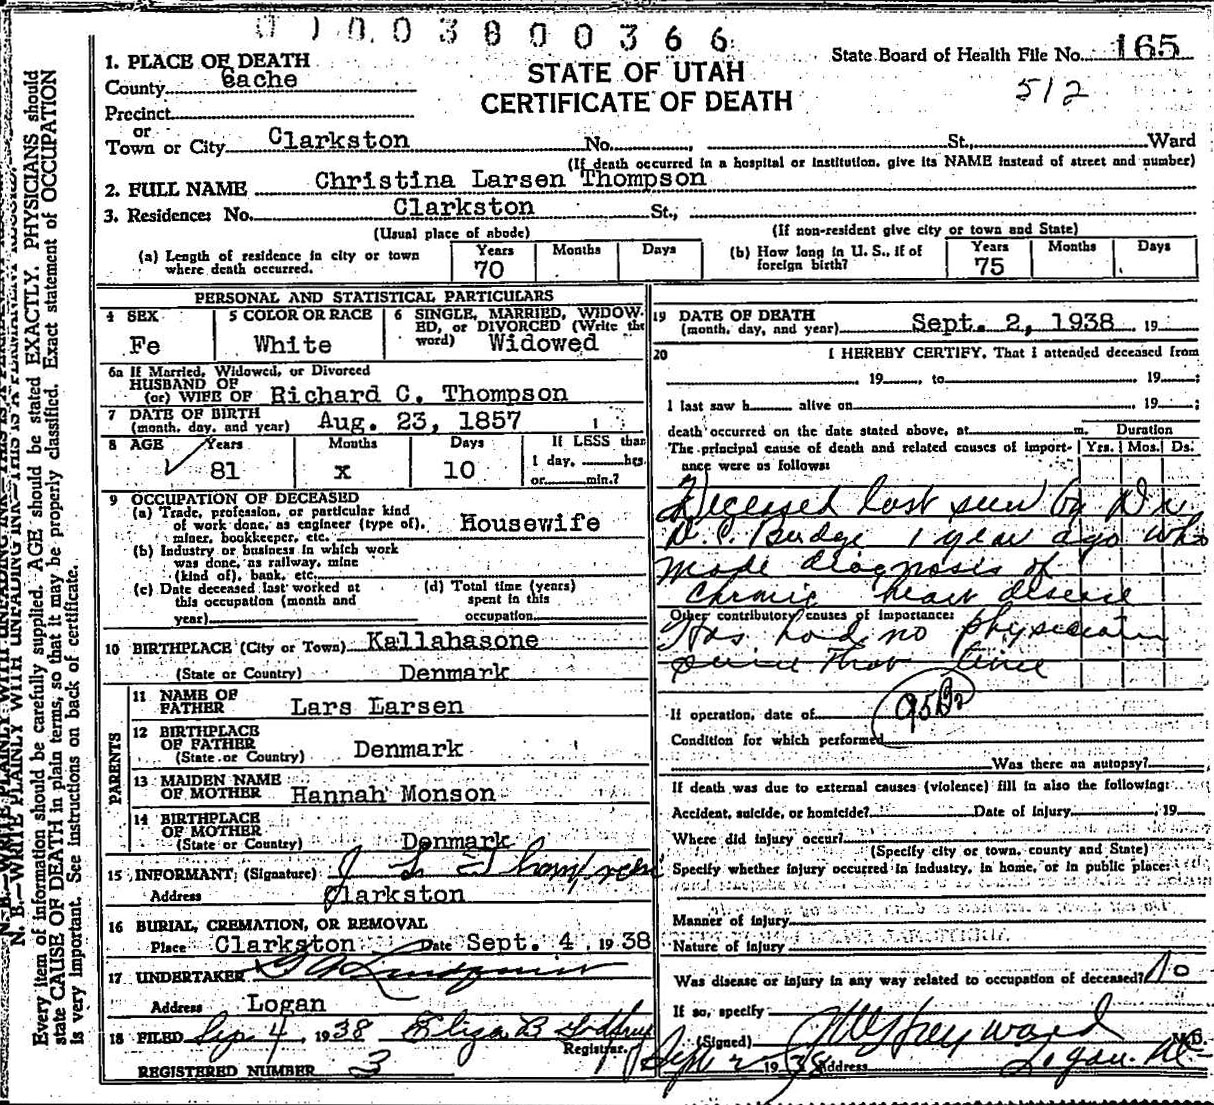 003800366
State Board of Health File No. 165
512
STATE OF UTAH
CERTIFICATE OF DEATH
1. PLACE OF DEATH
County Cache
Precinct
or
Town or City Clarkston No. , St., Ward
(If death occurred in a hospital or institution, give its NAME instead of street and number)
2. FULL NAME Christina Larsen Thompson
3. Residence: No. Clarkston St.,
(Usual place of abode) (If non-resident give city or town and State)
(a) Length of residence in city or town where death occurred. Years 70 Months Days
(b) How long in U. S., if of foreign birth? Years 75 Months Days
PERSONAL AND STATISTICAL PARTICULARS
4 SEX Fe
5 COLOR OR RACE White
6 SINGLE, MARRIED, WIDOW-
ED, or DIVORCED (Write the
word) Widowed
6a If Married, Widowed, or Divorced
HUSBAND OF
(or) WIFE OF Richard C. Thompson
7 DATE OF BIRTH
(month, day, and year) Aug. 23, 1857
8 AGE Years 81 Months x Days 10 If LESS than
1 day, hrs.
or min.?
9 OCCUPATION OF DECEASED
(a) Trade, profession, or particular kind
of work done, as engineer (type of),
miner, bookkeeper, etc. Housewife
(b) Industry or business in which work
was done, as railway, mine
(kind of), bank, etc.
(c) Date deceased last worked at
this occupation (month and
year)
(d) Total time (years)
spent in this
occupation
10 BIRTHPLACE (City or Town) Kallahasone
(State or Country) Denmark
PARENTS
11 NAME OF
FATHER Lars Larsen
12 BIRTHPLACE
OF FATHER
(State or Country) Denmark
13 MAIDEN NAME
OF MOTHER Hannah Monson
14 BIRTHPLACE
OF MOTHER
(State or Country) Denmark
15 INFORMANT: (Signature)
Address Clarkston
16 BURIAL, CREMATION, OR REMOVAL
Place Clarkston Date Sept. 4, 1938
17 UNDERTAKER
Address Logan
18 FILED Sep. 4, 1938 Eliza B Godfrey
Registrar.
REGISTERED NUMBER 3
19 DATE OF DEATH
(month, day, and year) Sept. 2, 1938, 19
20 I HEREBY CERTIFY, That I attended deceased from
, 19 , to , 19 ;
I last saw h alive on , 19 ;
death occurred on the date stated above, at m. Duration
The principal cause of death and related causes of import-
ance were as follows: Yrs. Mos. Ds.
Deceased last seen by Dr.
D. C. Budge 1 year ago who
made diagnoses of
Chronic heart disease
Other contributory causes of importance:
Has had no physician
since that time
If operation, date of
Condition for which performed
Was there an autopsy?
If death was due to external causes (violence) fill in also the following:
Accident, suicide, or homicide? Date of injury , 19
Where did injury occur?
(Specify city or town, county and State)
Specify whether injury occurred in industry, in home, or in public place:
Manner of injury
Nature of injury
Was disease or injury in any way related to occupation of deceased? No
If so, specify
(Signed) M.D.
Sept 2 1938 Address Logan.
N. B.—WRITE PLAINLY WITH UNFADING INK—THIS IS A PERMANENT RECORD.
Every item of information should be carefully supplied. AGE should be stated EXACTLY. PHYSICIANS should
state CAUSE OF DEATH in plain terms, so that it may be properly classified. Exact statement of OCCUPATION
is very important. See instructions on back of certificate.